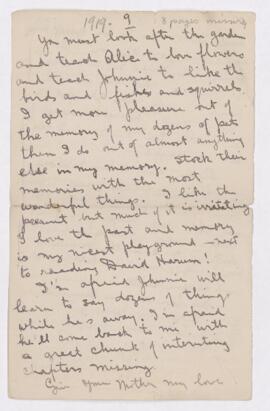 1919. 9 8 pages missing
You must look after the garden
and teach Alice to love flowers
and teach Johnnie to like the
birds and fishes and squirrels.
I get more pleasure out of
the memory of my dozens of pets
than I do out of almost anything
else in my memory. Stock their
memories with the most
wonderful things. I like the
present but much of it is irritating
I love the past and memory
is my nicest playground – next
to reading David Harum!
I'm afraid Johnnie will
learn to say dozens of things
while he's away. I'm afraid
he'll come back to me with
a great chunk of interesting
chapters missing
Give your Mother my love